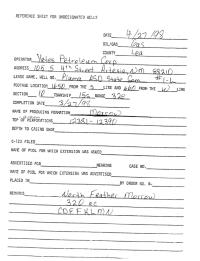 REFERENCE SHEET FOR UNDESIGNATED WELLS
DATE 4/27/98
OIL/GAS Gas
COUNTY Lea
OPERATOR Yates Petroleum Corp
ADDRESS 105 S 4th Street Artesia, NM 88210
LEASE NAME, WELL NO. ASD State Com #1-
FOOTAGE LOCATION 1650 FROM THE S LINE AND 660 FROM THE W LINE
SECTION TOWNSHIP 15S RANGE 32E
COMPLETION DATE 3/27/98
NAME OF PRODUCING FORMATION Morrow
TOP OF PERFORATIONS 12381-12390
DEPTH TO CASING SHOE
C-123 FILED
NAME OF POOL FOR WHICH EXTENSION WAS ASKED
ADVERTISED FOR HEARING CASE NO.
NAME OF POOL FOR WHICH EXTENSION WAS ADVERTISED
PLACED IN BY ORDER NO. R-
REMARKS North Feather Morrow
320 ac
CDEFKLMN